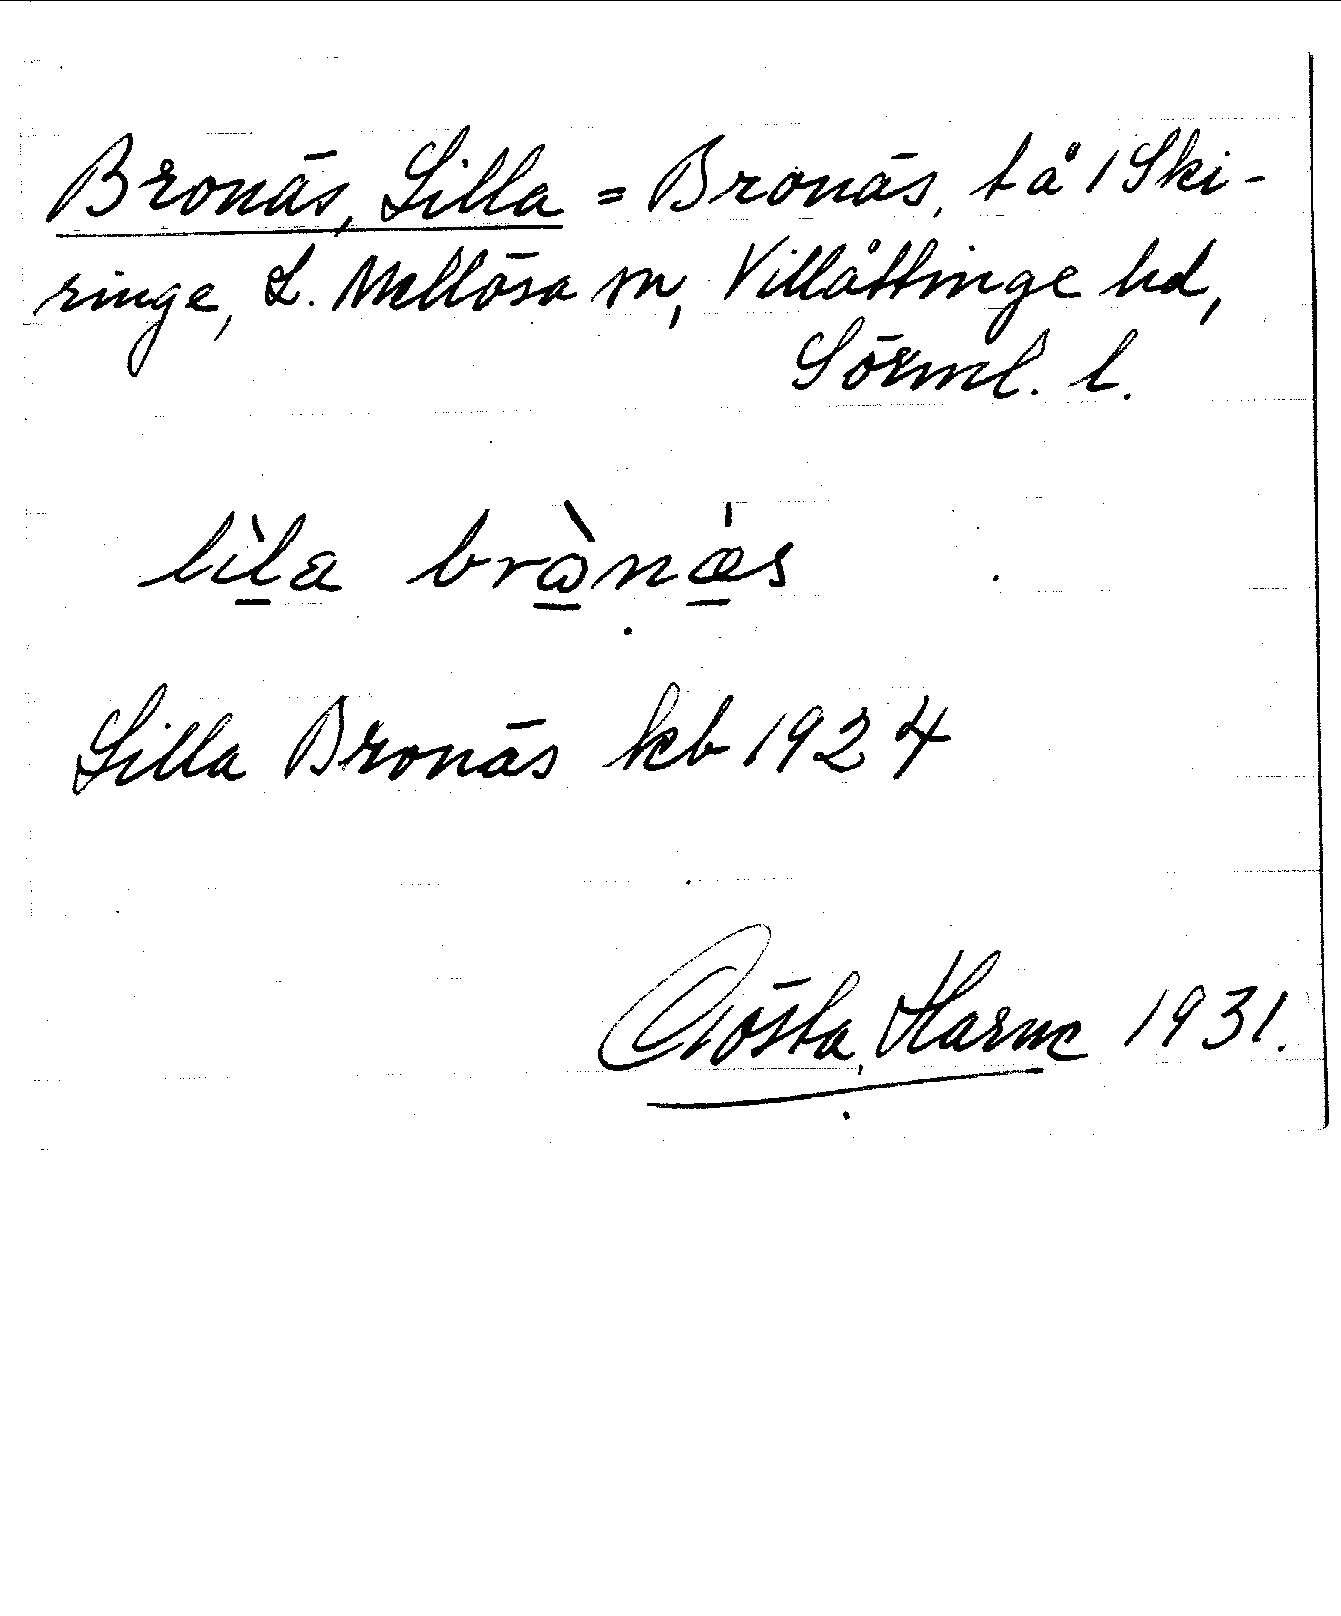 Bronäs, Lilla = Bronäs, t å 1 Ski-
ringe, L. Mellösa sn, Villåttinge hd,
Sörml. l.
lìla brὼnæ̍s
Lilla Bronäs kb 1924
Gösta Harne 1931.